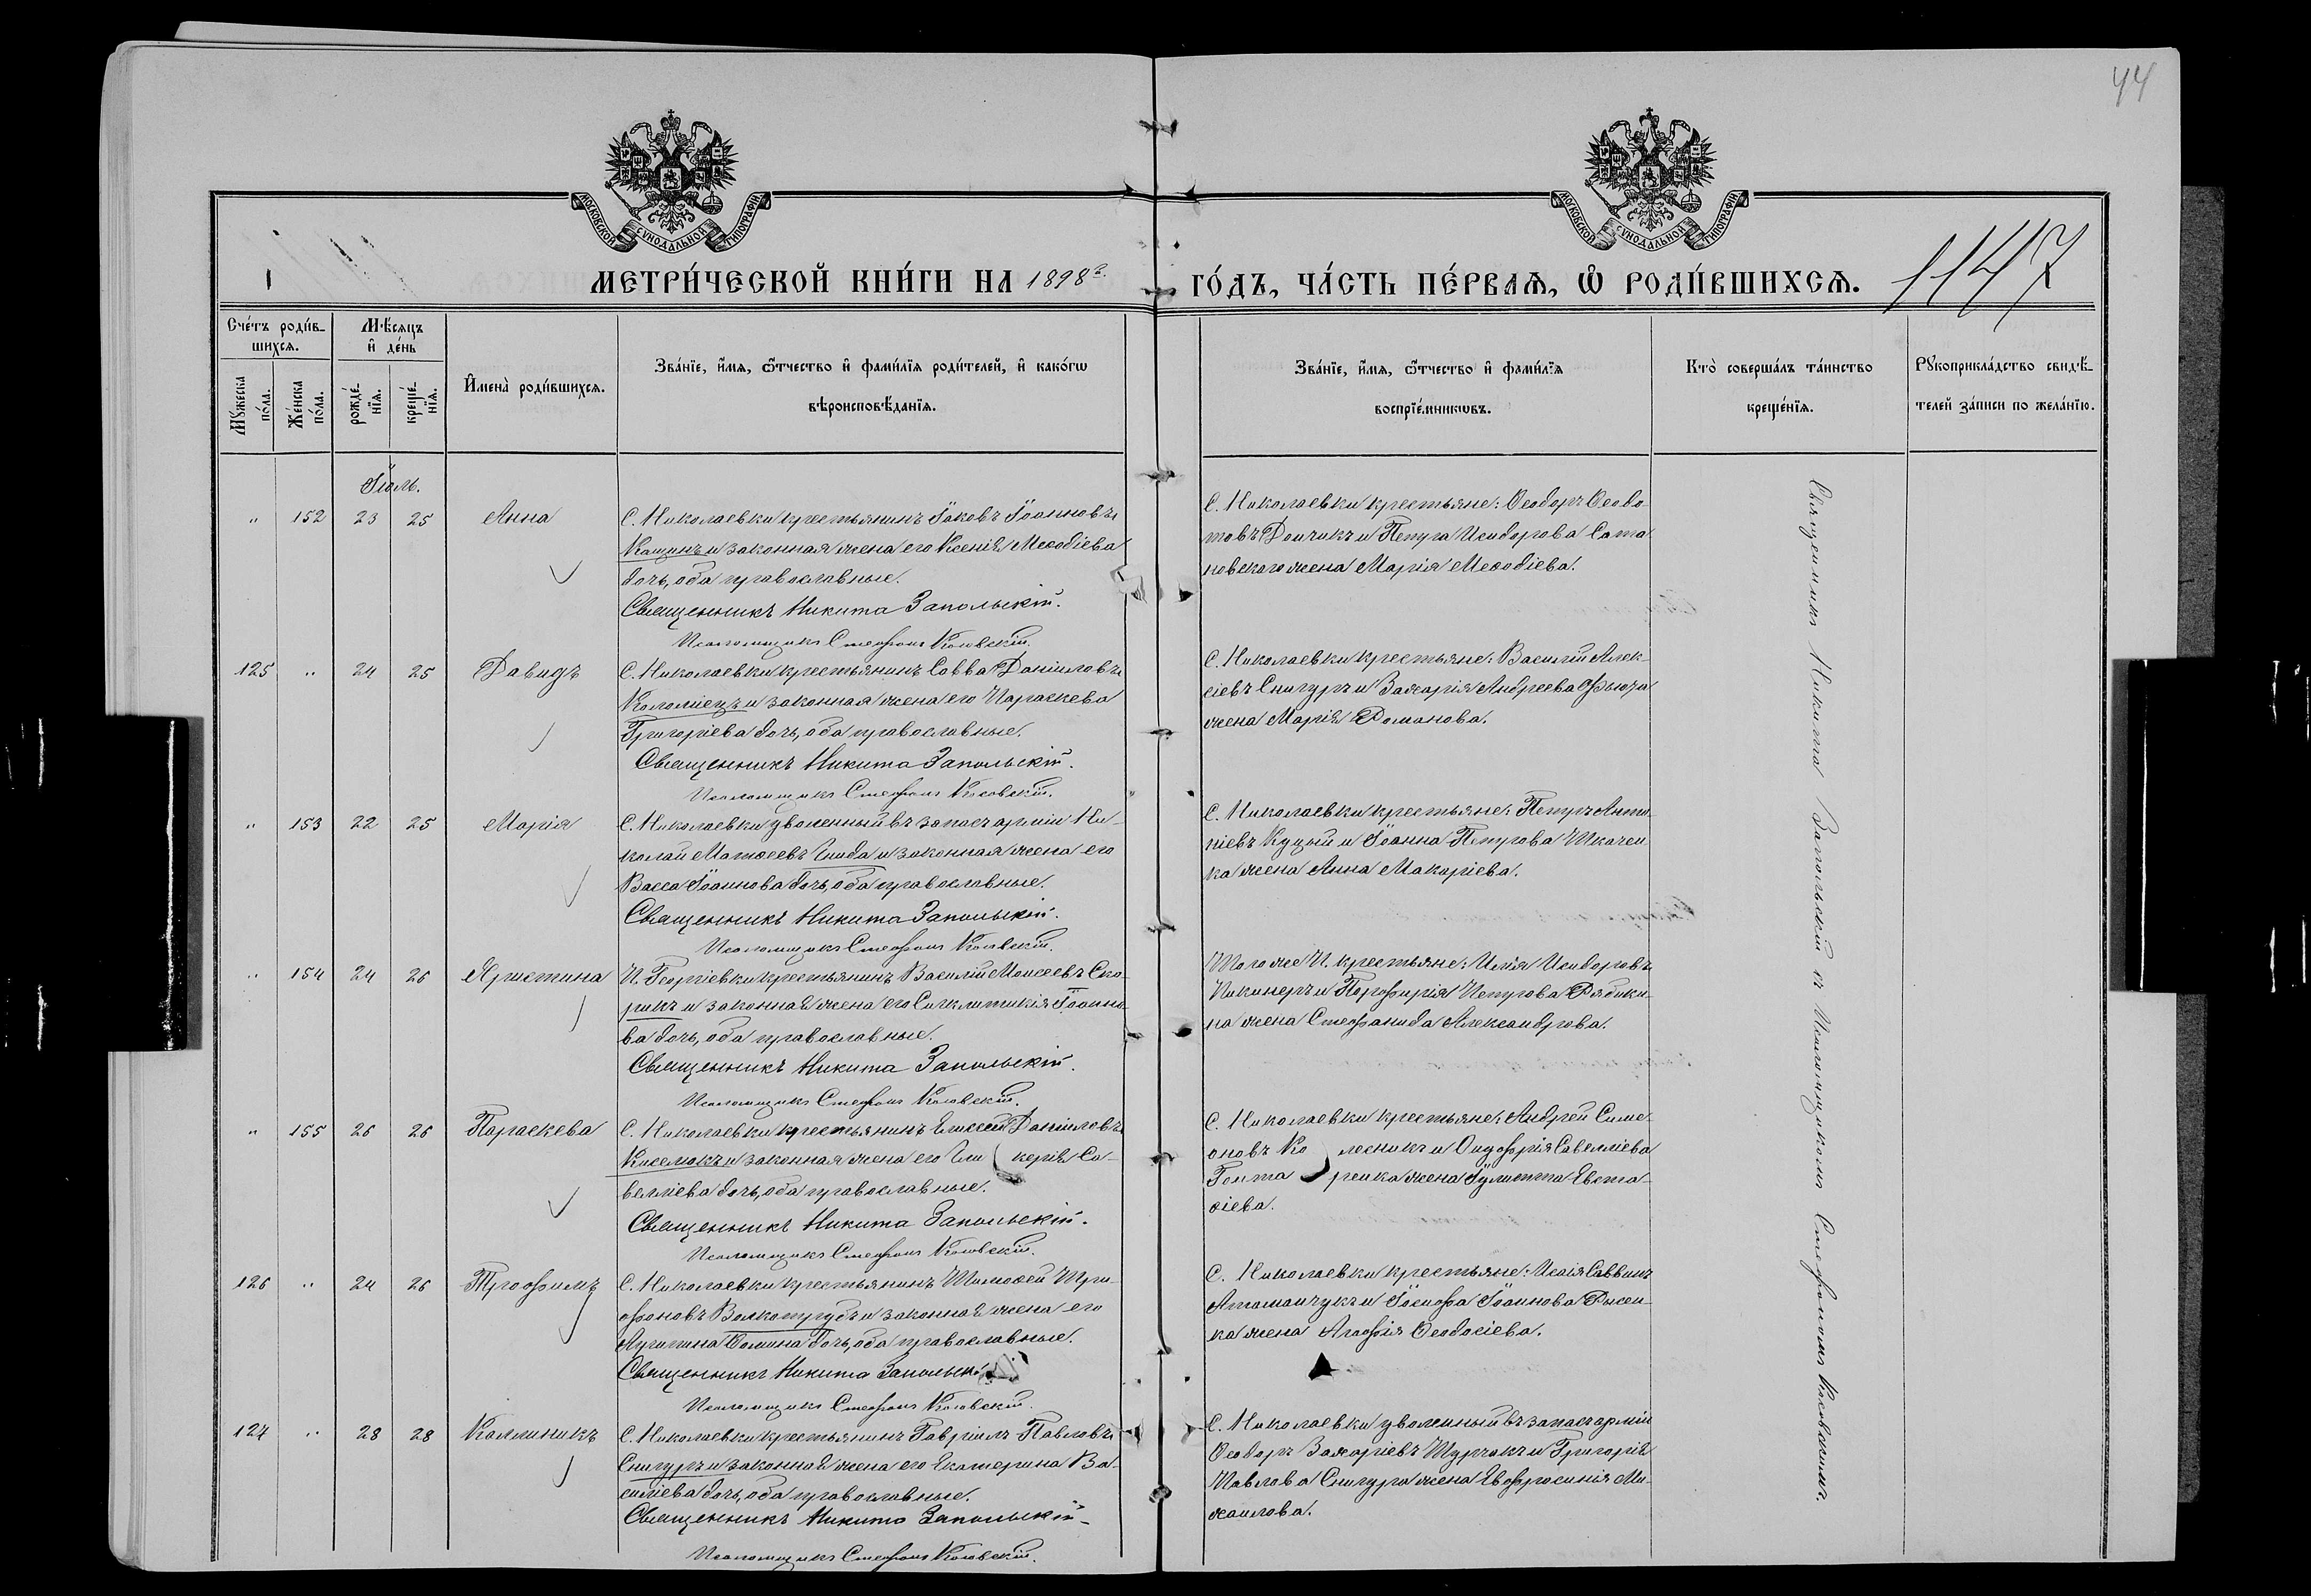 44
МОСКОВСКОЙ СѴНОДАЛЬНОЙ ТИПОГРАФІИ
МОСКОВСКОЙ СѴНОДАЛЬНОЙ ТИПОГРАФІИ
МЕТРИ́ЧЕСКОЙ КНИ́ГИ НА 1898 г.
ГО́ДЪ, ЧА́СТЬ ПЕ́РВАѦ, Ѡ҆ РОДИ́ВШИХСѦ.
1147
Сче́тъ роди́в-
шихсѧ.
Мѣ́сѧцъ
и҆ де́нь
Мꙋ́жеска
по́ла.
Же́нска
по́ла.
рожде́-
нїѧ.
креще́-
нїѧ.
И҆мена̀ роди́вшихсѧ.
Зва́нїе, и҆́мѧ, ѻ҆́тчество и҆ фами́лїѧ роди́телей, и҆ како́гѡ
вѣроисповѣ́данїѧ.
Зва́нїе, и҆́мѧ, ѻ҆́тчество и҆ фами́лїѧ
воспрїе́мникѡвъ.
Кто̀ соверша́лъ та́инство
креще́нїѧ.
Рꙋкоприкла́дство свидѣ́-
телей за́писи по жела́нїю.
Іюль.
" 152 23 25 Анна
С. Николаевки крестьянинъ Іаковъ Іоанновъ
Кащинъ и законная жена его Ксенія Меѳодіева
дочь, оба православные.
Священникъ Никита Запольскій.
Псаломщикъ Стефанъ Косовскій.
С. Николаевки крестьяне: Ѳеодоръ Ѳеодо-
товъ Дончикъ и Петра Исидорова Сата
новскаго жена Марія Меѳодіева.
125 " 24 25 Давидъ
С. Николаевки крестьянинъ Савва Даніиловъ
Коломіецъ и законная жена его Параскева
Григоріева дочь, оба православные.
Священникъ Никита Запольскій.
Псаломщикъ Стефанъ Косовскій.
С. Николаевки крестьяне: Василій Алек-
сіевъ Снигуръ и Захарія Андреева
жена Марія Романова.
" 153 22 25 Марія
С. Николаевки уволенный въ запасъ арміи Ни-
колай Матѳеевъ Гнида и законная жена его
Васса Іоаннова дочь, оба православные.
Священникъ Никита Запольскій.
Псаломщикъ Стефанъ Косовскій.
С. Николаевки крестьяне: Петръ Анто-
ніевъ Куцый и Іоанна Петрова Ткачен
ка жена Анна Макаріева.
" 154 24 26 Христина
П. Георгіевки крестьянинъ Василій Моисеевъ Ско-
рикъ и законная жена его Сигклитикія Іоанно-
ва дочь, оба православные.
Священникъ Никита Запольскій.
Псаломщикъ Стефанъ Косовскій.
Того же П. крестьяне: Илія Исидоровъ
Пикинеръ и Порфирія Петрова Рябоки-
на жена Стефанида Александрова.
" 155 26 26 Параскева
С. Николаевки крестьянинъ Елисей Даніиловъ
Киселюкъ и законная жена его Гли керія Са-
велліева дочь, оба православные.
Священникъ Никита Запольскій.
Псаломщикъ Стефанъ Косовскій.
С. Николаевки крестьяне: Андрей Симе-
оновъ Ко лесникъ и Онуфрія Савелліева
Гонта ренка жена Іулитта Евста-
ѳіева.
126 " 24 26 Трофимъ
С. Николаевки крестьянинъ Тимоѳей Три-
фоновъ Волкотрубъ и законная жена его
Агрипина Ѳомина дочь, оба православные.
Священникъ Никита Запольскій
Псаломщикъ Стефанъ Косовскій.
С. Николаевки крестьяне: Исаія Саввинъ
Атаманчукъ и Іосифа Іоаннова Рысен-
ка жена Агафія Ѳеодосіева.
127 " 28 28 Каллиникъ
С. Николаевки крестьянинъ Гавріилъ Павловъ
Снигуръ и законная жена его Екатерина Ва-
силіева дочь, оба православные.
Священникъ Никита Запольскій
Псаломщикъ Стефанъ Косовскій.
С. Николаевки уволенный въ запасъ арміи
Ѳеодоръ Захаріевъ Турчакъ и Григорія
Павлова Снигура жена Евфросинія Ми-
хаилова.
Священникъ Никита Запольскій съ Псаломщикомъ Стефаномъ Косовскимъ.